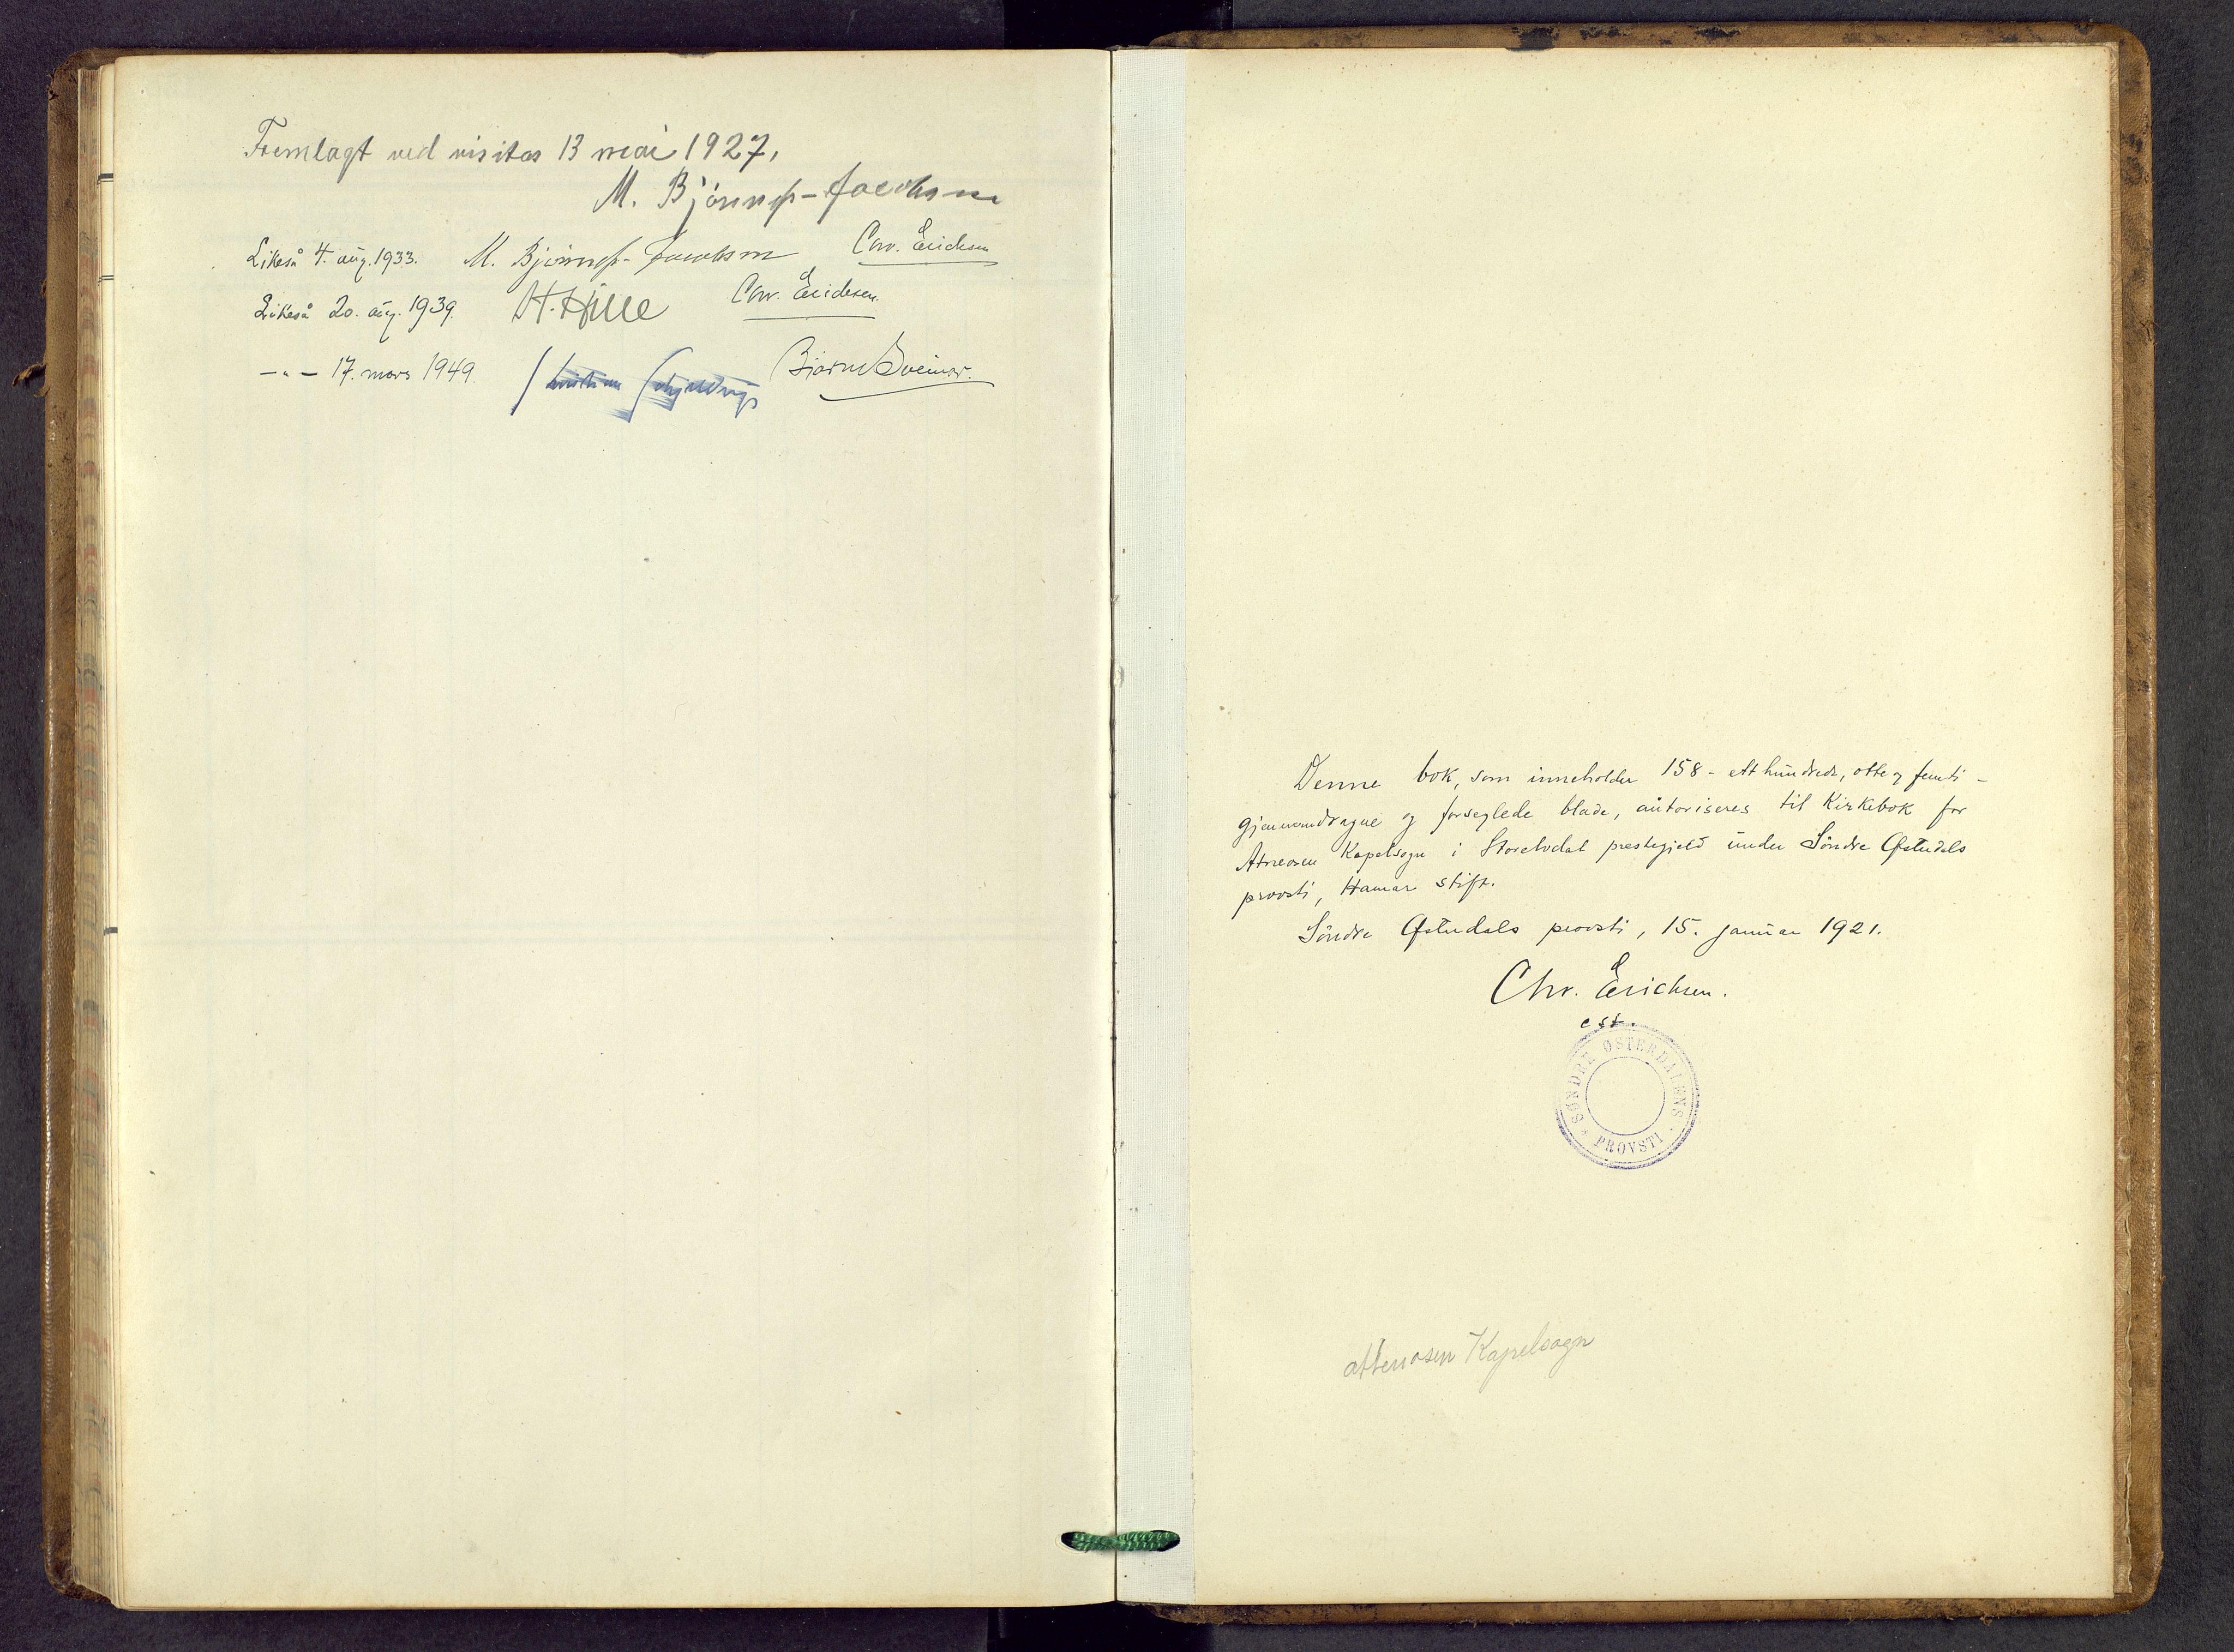 Fremlagt ved visitas 13 mai 1927,
M. Bjønnes-Jacobsen
Likeså 4. aug. 1933. M. Bjønnes-Jacobsen Chr. Erichsen
Likeså 20. aug. 1939. H. Hille Chr. Erichsen.
— " — 17. mars 1949. Kristian Schjelderup Bjarne
Denne bok, som inneholder 158 - ett hundrede, otte og femti -
gjennemdragne og forseglede blade, autoriseres til Kirkebok for
Atneosen Kapelsogn i Storelvdal prestegjeld under Söndre Østerdals
provsti, Hamar stift.
Söndre Østerdals provsti, 15. januar 1921.
Chr. Erichsen.
cst.
SØNDRE ØSTERDALENS
PROVSTI
Attenosen Kapelsogn